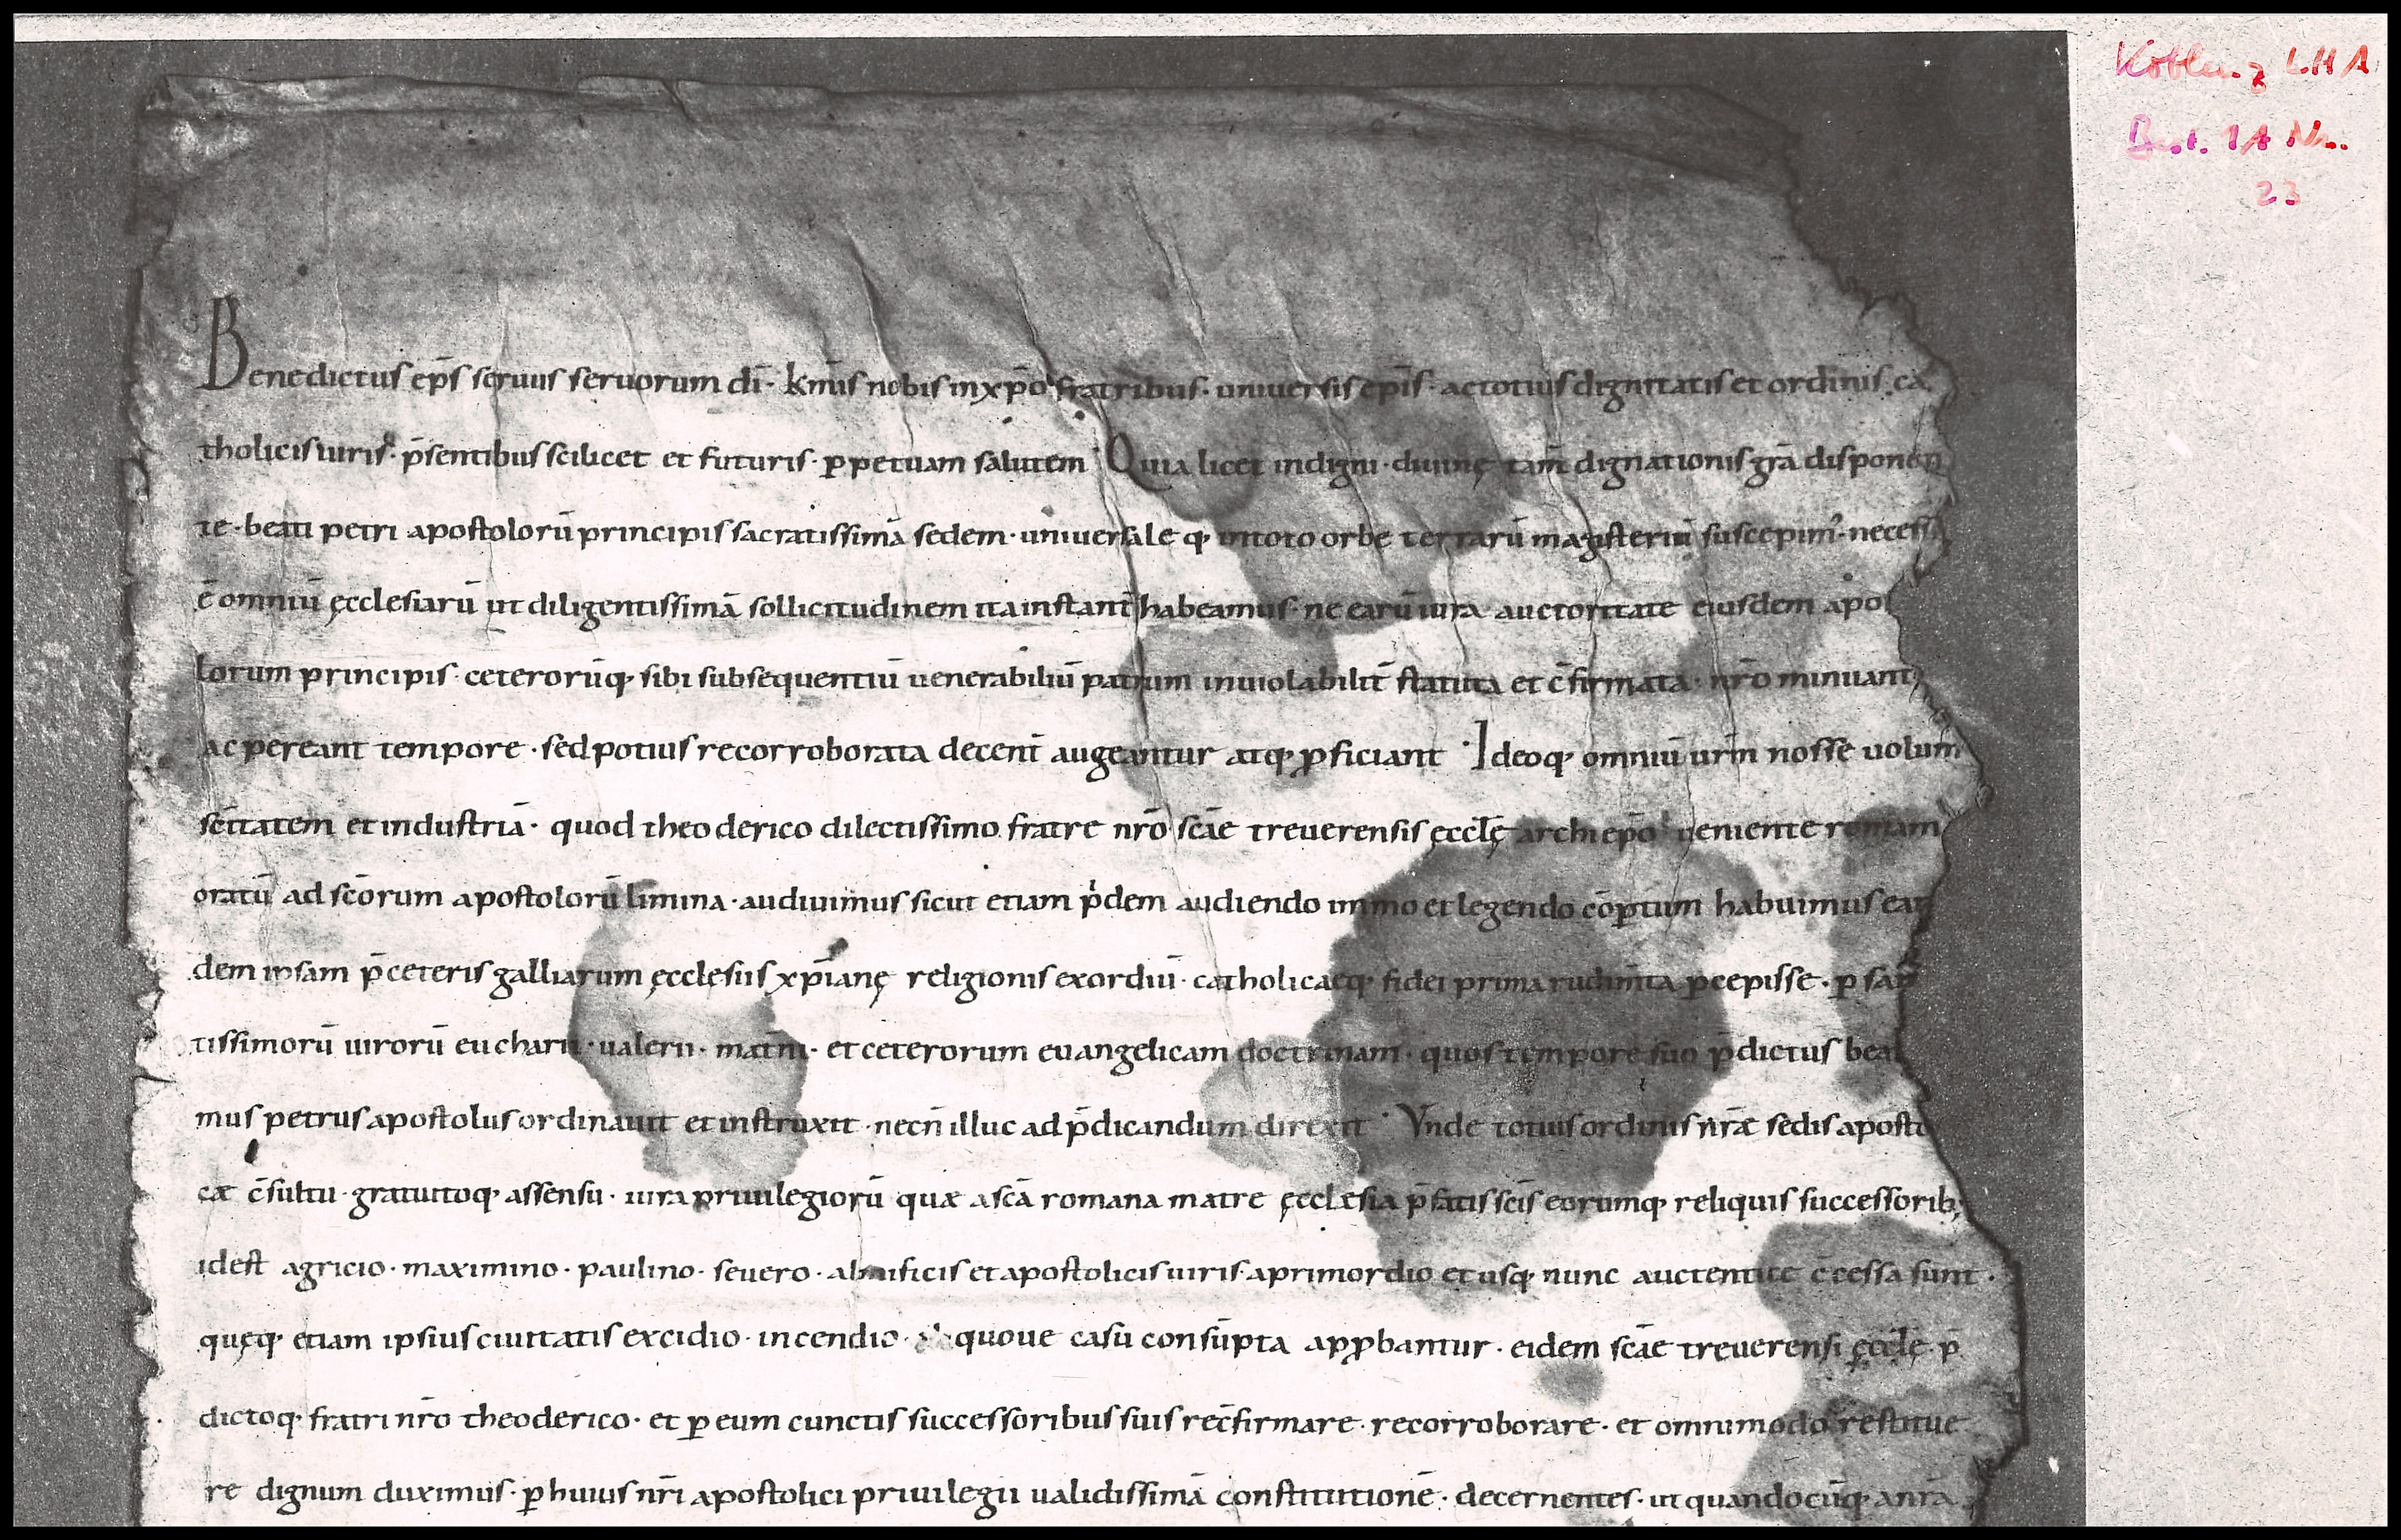 Koblenz LHA
Best. 1A Nr.
23
Benedictus ep̄s seruus seruorum dī· kmis nobis in xp̄o fratribus· uniuersis ep̄is· ac totius dignitatis et ordinis ca
tholicis uiris· p̄sentibus scilicet et futuris· ꝑpetuam salutem· Quia licet indigni· diuinę tam̄ dignationis grā disponen
te· beati petri apostolorū principis sacratissimā sedem· uniuersale q; in toto orbe terrarū magisteriū suscepim᾽· necess
ē omniū ęcclesiarū ut diligentissimā sollicitudinem ita instant̄ habeamus· ne earū iura auctoritate eiusdem apo
lorum principis· ceterorūq; sibi subsequentiū uenerabiliū patrum inuiolabilit̄ statuta et c̄firmata· nr̄o minuant
ac pereant tempore· sed potius recorroborata decent̄ augeantur atq; ꝓficiant· Ideoq; omniū urm̄ nosse uolum
sc̄itatem et industriā· quod theoderico dilectissimo fratre nr̄o scāe treuerensis ęcclę̄ archiep̄o ueniente romam
oratū ad scōrum apostolorū limina· audiuimus sicut etiam pͥdem audiendo immo et legendo cōꝑtum habuimus ean
dem ipsam p̄ ceteris galliarum ęcclesiis xp̄ianę religionis exordiū· catholicaeq; fidei prima rudim̄ta ꝑcepisse· ꝑ san
tissimorū uirorū eucharii· ualerii· mat̄ni· et ceterorum euangelicam doctrinam· quos tempore suo p̄dictus bea
mus petrus apostolus ordinauit et instruxit· necn̄ illuc ad p̄dicandum direxit· Vnde totius ordinis nr̄æ sedis aposto
cæ c̄sultu· gratuitoq; assensu· iura priuilegiorū quæ a scā romana matre ęcclesia p̄fatis scīs eorumq; reliquis successorib;
id est agricio· maximino· paulino· seuero· almificis et apostolicis uiris· a primordio et usq; nunc auctentice c̄cessa sunt·
quęq; etiam ipsius ciuitatis excidio· incendio· quoue casu consūpta apꝓbantur· eidem scāe treuerensi ęcclę̄ p̄
dictoq; fratri nr̄o theoderico· et ꝑ eum cunctis successoribus suis rec̄firmare· recorroborare· et omnimodo restitue
re dignum duximus· ꝑ huius nr̄i apostolici priuilegii ualidissimā constitutionē· decernentes· ut quandocūq; a nr̄a